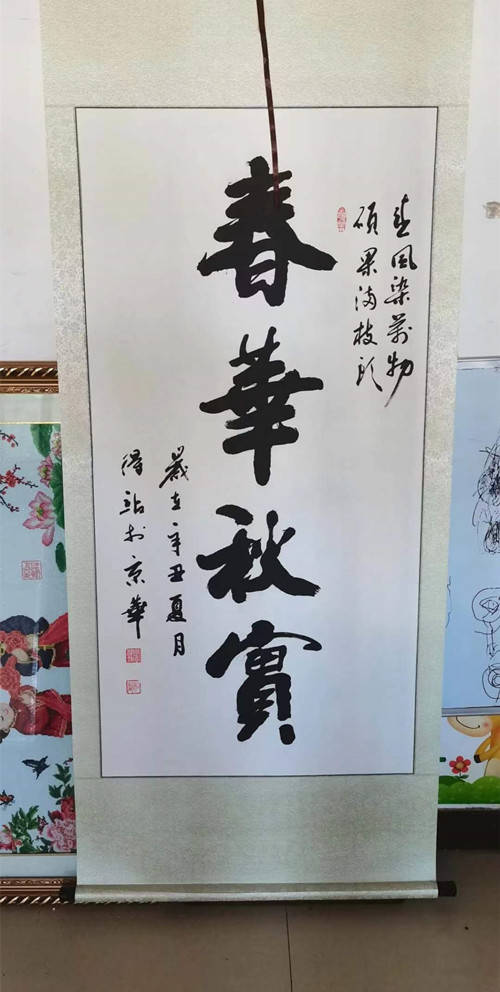 春風染萬物
碩果滿枝頭
春華秋實
歲在辛丑夏月
得於京華